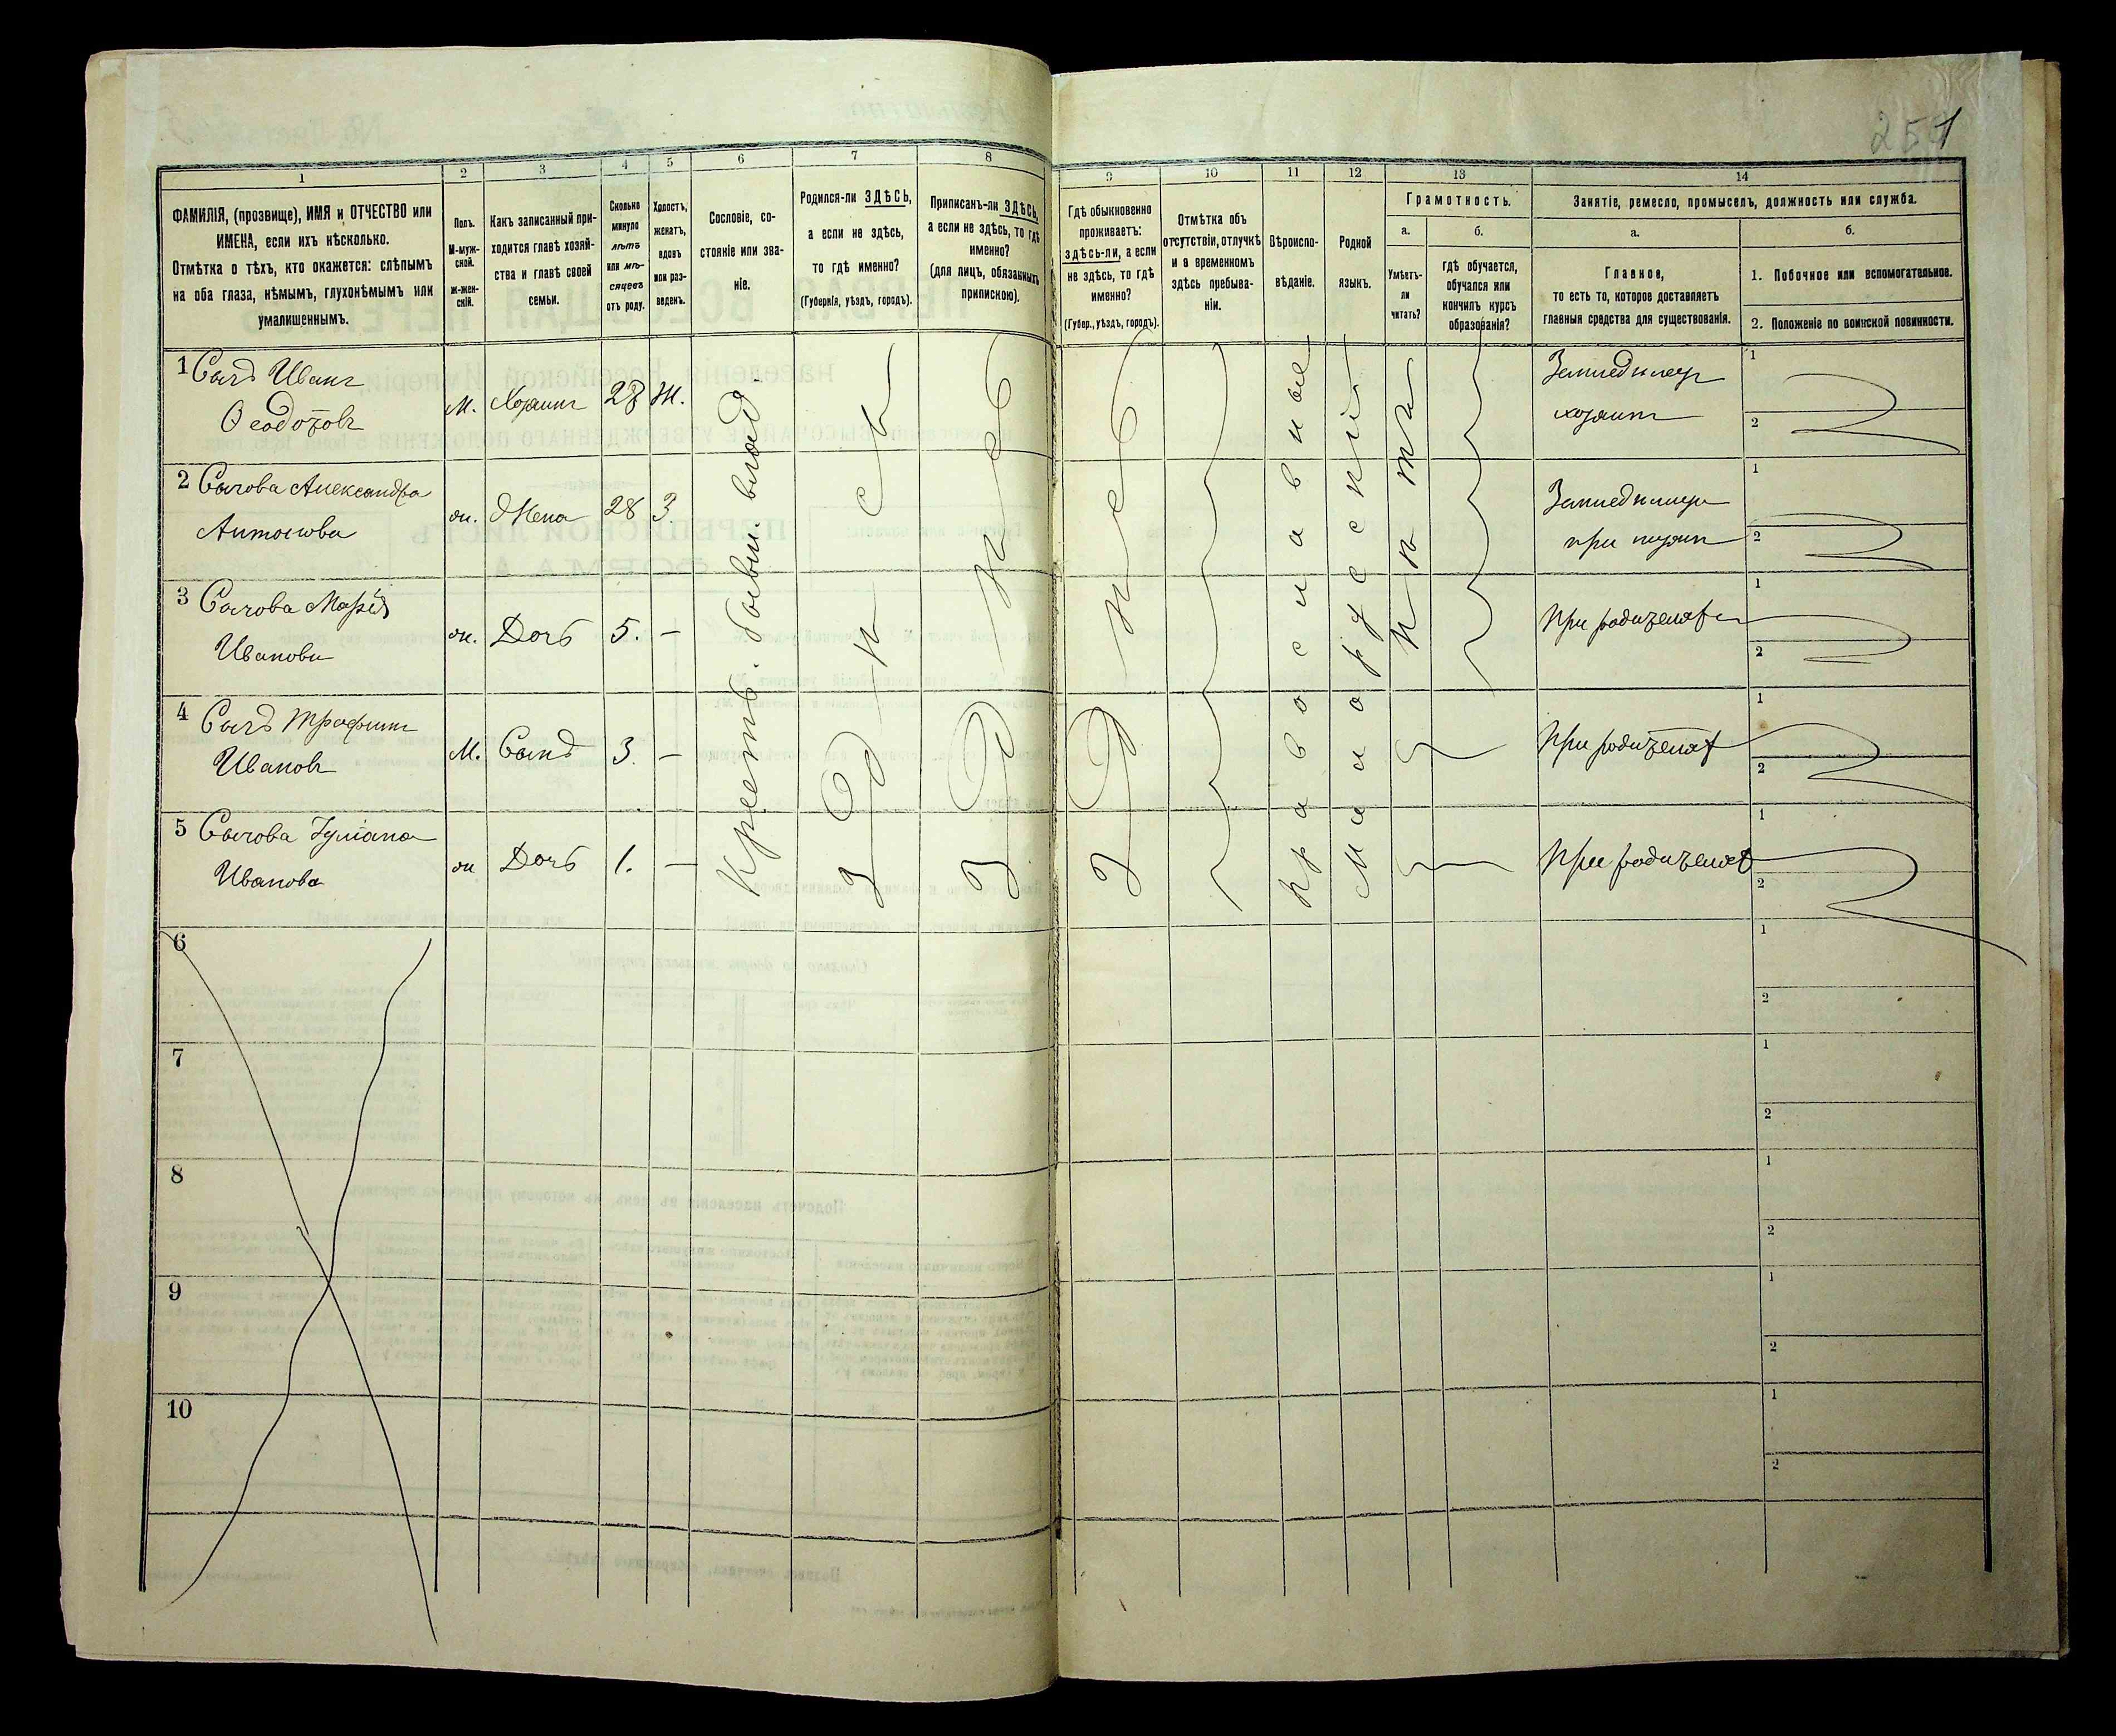 251
1
2
3
4
5
6
7
8
9
10
11
12
13
14
ФАМИЛІЯ, (прозвище), ИМЯ и ОТЧЕСТВО или
ИМЕНА, если ихъ нѣсколько.
Отмѣтка о тѣхъ, кто окажется: слѣпымъ
на оба глаза, нѣмымъ, глухонѣмымъ или
умалишеннымъ.
Полъ.
М-муж-
ской.
Ж-жен-
скій.
Какъ записанный при-
ходится главѣ хозяй-
ства и главѣ своей
семьи.
Сколько
минуло
лѣтъ
или мѣ-
сяцевъ
отъ роду.
Холостъ,
женатъ,
вдовъ
или раз-
веденъ.
Сословіе, со-
стояніе или зва-
ніе.
Родился-ли ЗДѢСЬ,
а если не здѣсь,
то гдѣ именно?
(Губернія, уѣздъ, городъ).
Приписанъ-ли ЗДѢСЬ,
а если не здѣсь, то гдѣ
именно?
(для лицъ, обязанныхъ
припискою).
Гдѣ обыкновенно
проживаетъ:
здѣсь-ли, а если
не здѣсь, то гдѣ
именно?
(Губер., уѣздъ, городъ).
Отмѣтка объ
отсутствіи, отлучкѣ
и о временномъ
здѣсь пребыва-
ніи.
Вѣроиспо-
вѣданіе.
Родной
языкъ.
Грамотность.
а.
Умѣетъ-
ли
читать?
б.
гдѣ обучается,
обучался или
кончилъ курсъ
образованія?
Занятіе, ремесло, промыселъ, должность или служба.
а.
Главное,
то есть то, которое доставляетъ
главныя средства для существованія.
б.
1. Побочное или вспомогательное.
2. Положеніе по воинской повинности.
1 Сычъ Иванъ
Ѳеодотовъ
М. Хозяинъ 28 Ж.
Земледѣлецъ
хозяинъ
1
2
2 Сычова Александра
Антонова
ж. Жена 28 З.
Земледѣлецъ
при мужѣ
1
2
3 Сычова Марія
Иванова
ж. Дочь 5. —
При родителяхъ
1
2
4 Сычъ Трофимъ
Ивановъ
М. Сынъ 3. —
При родителяхъ
1
2
5 Сычова Іуліана
Иванова
ж Дочь 1. —
При родителяхъ
1
2
Крестьъ. бывш. влад.
Здѣсь
Здѣсь
Здѣсь
Православное
Малорусскій
Нѣтъ
6
1
2
7
1
2
8
1
2
9
1
2
10
1
2